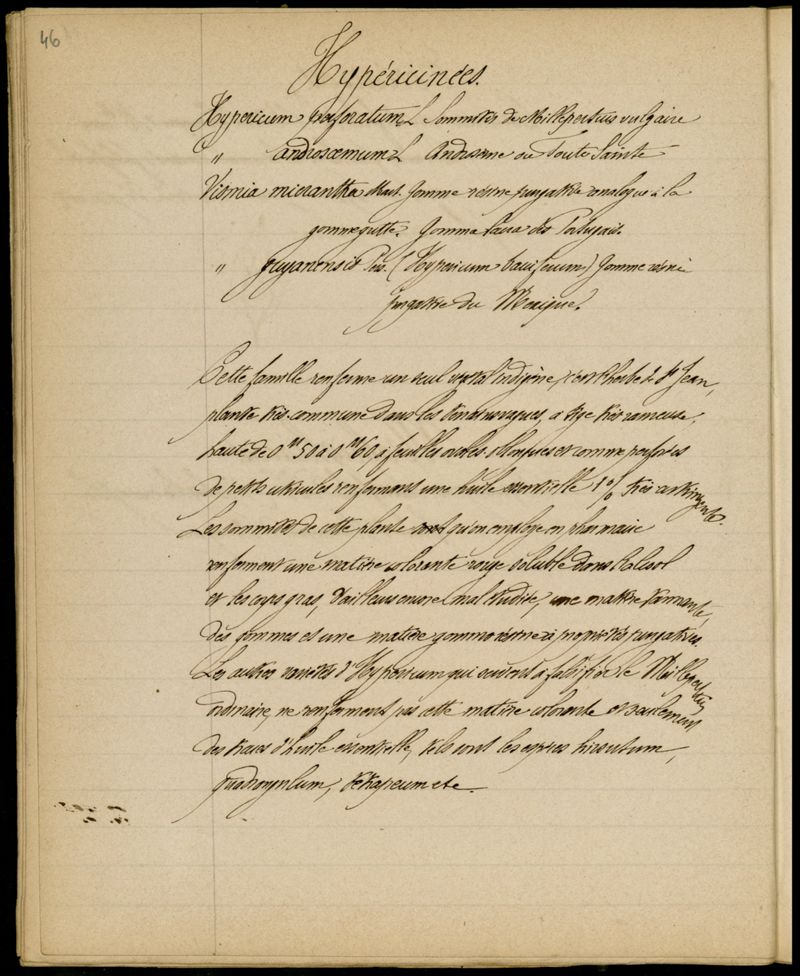 46
Hypéricinées.
Hypericum perforatum L Sommités de Millepertuis vulgaire
" androsoemum L Androseme ou Toute Sainte
Vismia micrantha Mart. Gomme résine purgative analogue à la
gommegutte. Gomma lacra des Portugais.
" guyanensis Pers. (Hypericum bacciferum) Gomme résine
purgative du Mexique.
Cette famille renferme un seul végétal indigène, c'est l'herbe de St Jean,
plante très commune dans les bois, à tige très rameuse,
haute de 0m50 à 0m60, à feuilles ovales oblongues et comme perforées
de petits utricules renfermant une huile essentielle 1% très astringente.
Les sommités de cette plante qu'on emploie en pharmacie
renferment une matière colorante rouge soluble dans l'alcool
et les corps gras, d'ailleurs encore mal étudiée, une matière tannante,
des gommes et une matière gommo résine à propriétés purgatives.
Les autres variétés d'Hypericum qui servent à falsifier le Millepertuis
ordinaire, ne renferment pas cette matière colorante et seulement
des traces d'huile essentielle, tels sont les espèces hirsutum,
quadrangulum, tetrapterum etc.